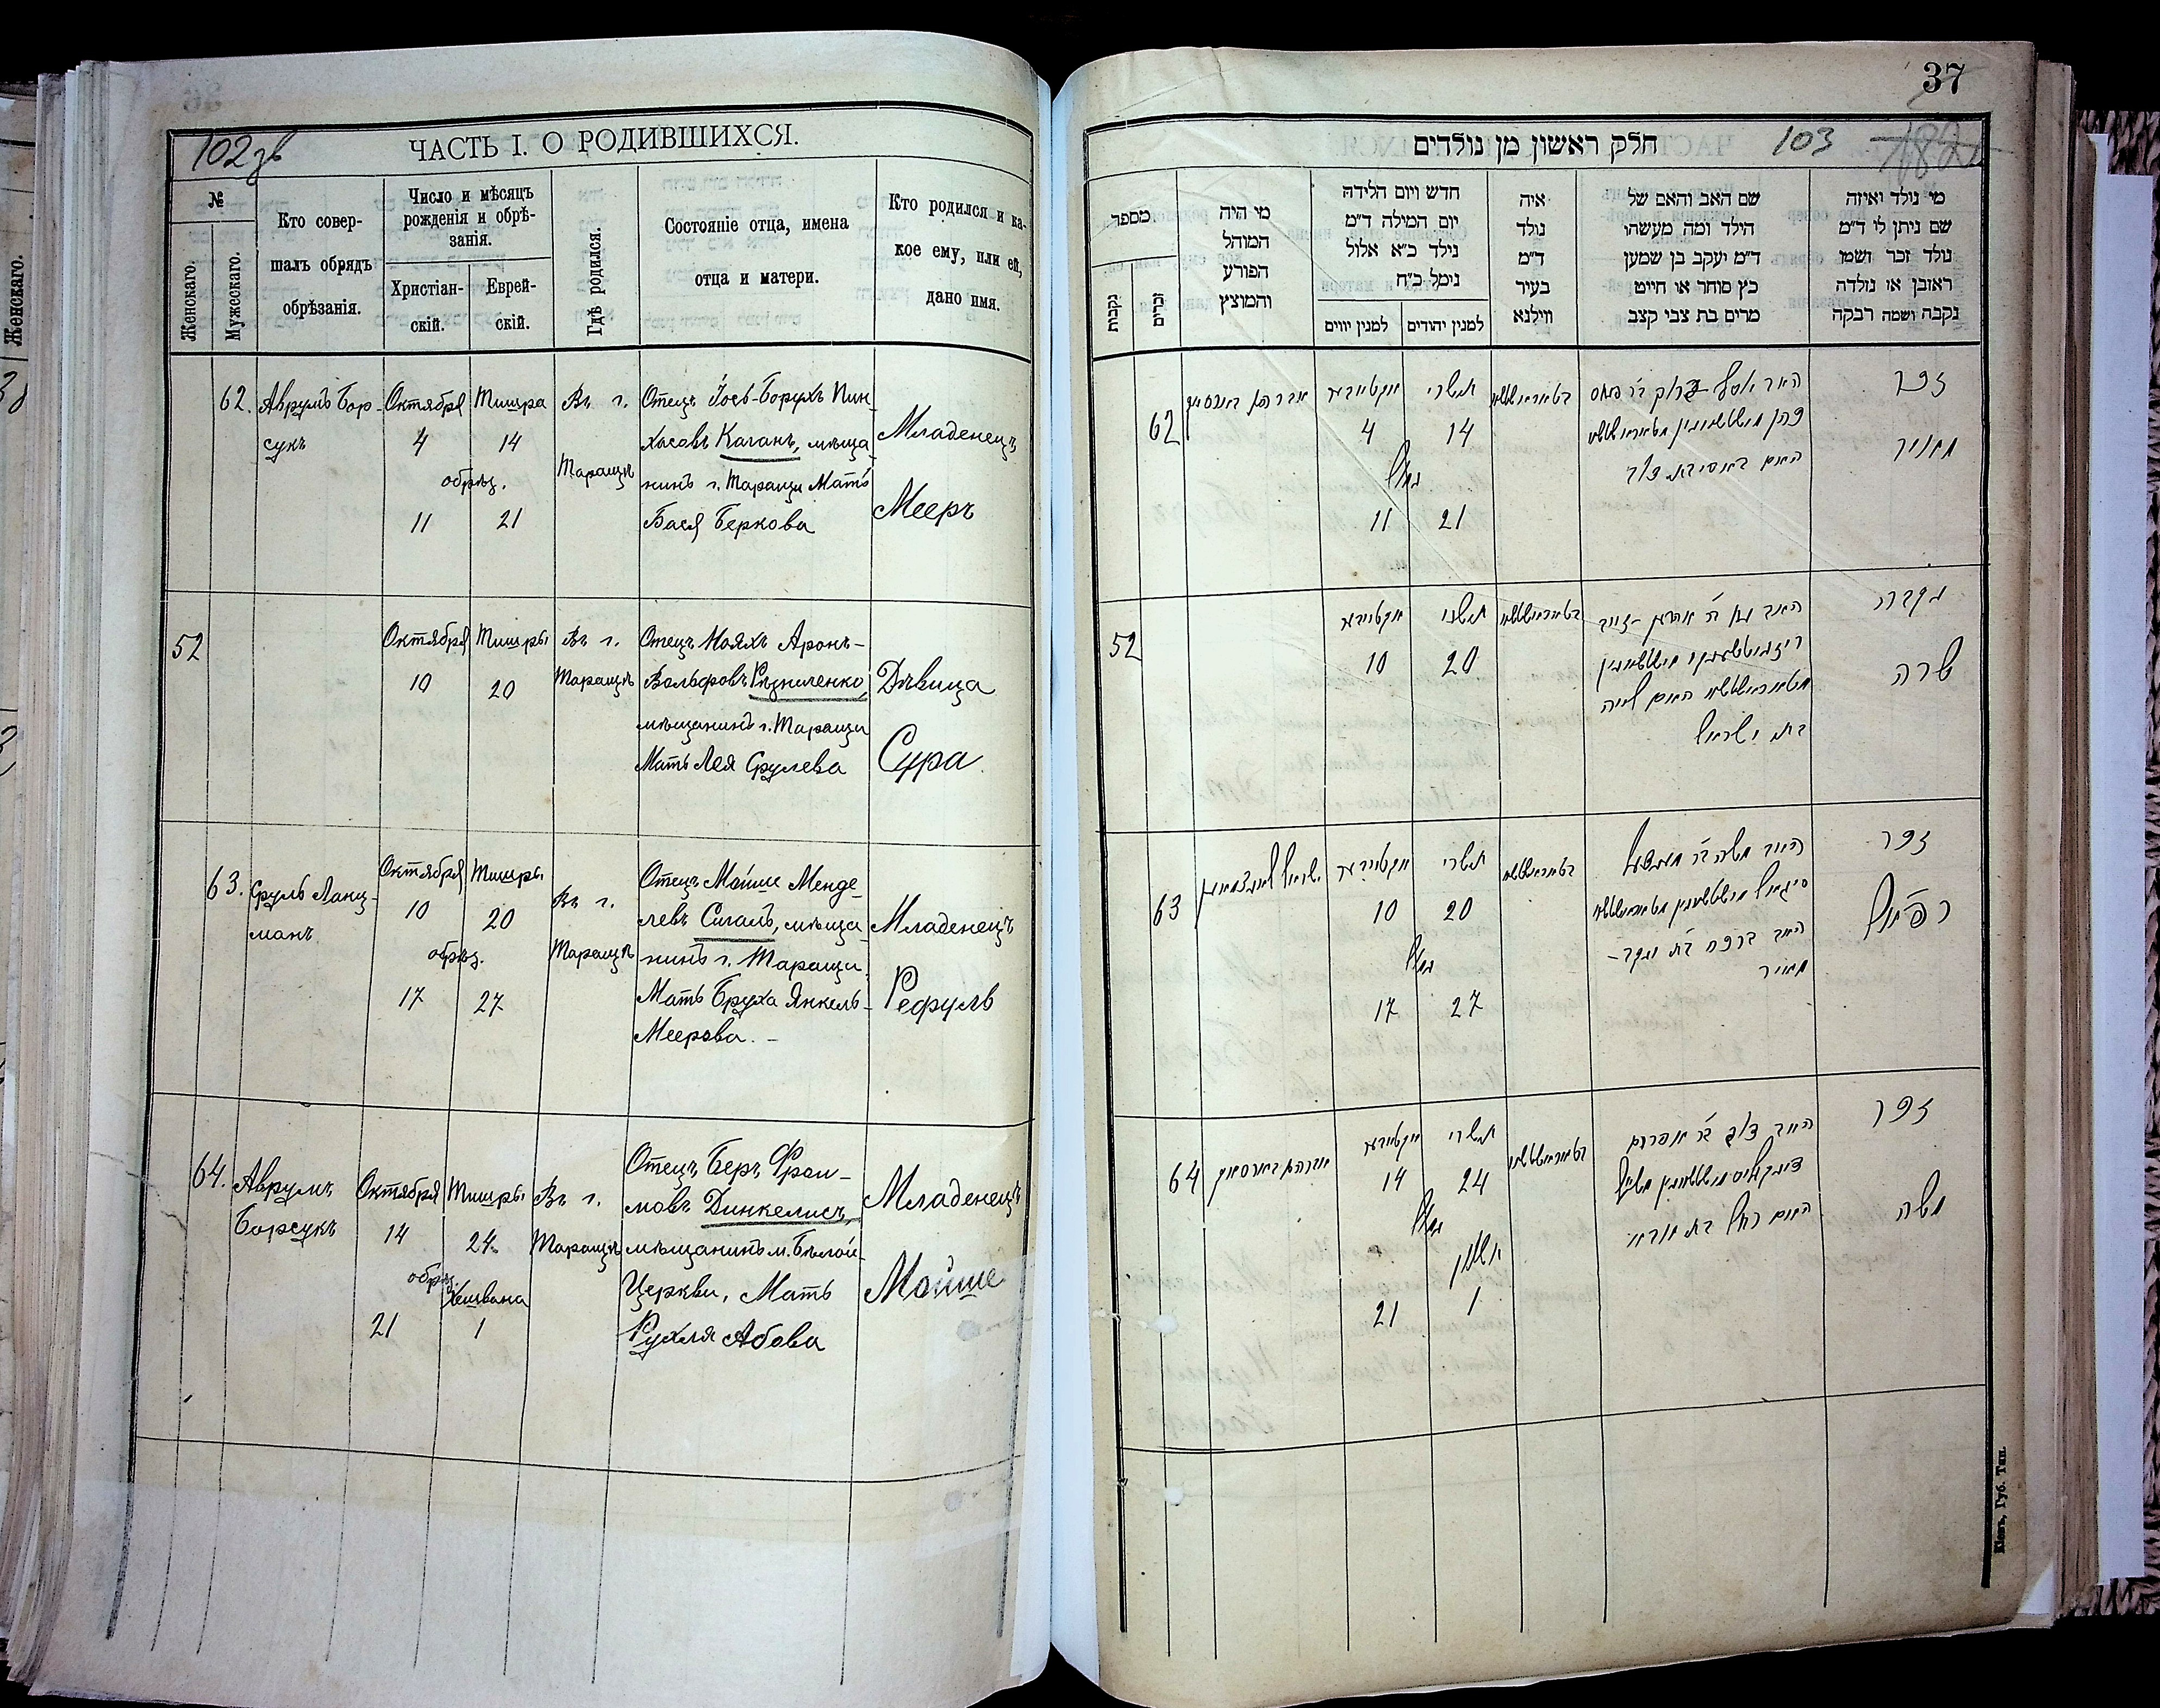 Женскаго.
102 зв
ЧАСТЬ I. О РОДИВШИХСЯ.
№
Женскаго.
Мужескаго.
Кто совер-
шалъ обрядъ
обрѣзанія.
Число и мѣсяцъ
рожденія и обрѣ-
занія.
Христіан-
скій.
Еврей-
скій.
Гдѣ родился.
Состояніе отца, имена
отца и матери.
Кто родился и ка-
кое ему, или ей,
дано имя.
62.
Аврумъ Бор-
сукъ
Октября
4
обрѣз.
11
Тишра
14
21
Въ г.
Таращѣ
Отецъ Іось-Борухъ Пин-
хасовъ Каганъ, мѣща-
нинъ г. Таращи Мать
Бася Беркова
Младенецъ
Мееръ
52
Октября
10
Тишры
20
Въ г.
Таращѣ
Отецъ Нояхъ Аронъ-
Вольфовъ Рѣзниченко,
мѣщанинъ г. Таращи
Мать Лея Срулева
Дѣвица
Сура
63.
Сруль Ланц-
манъ
Октября
10
обрѣз.
17
Тишры
20
27
Въ г.
Таращѣ
Отецъ Мойше Менде-
левъ Сигалъ, мѣща-
нинъ г. Таращи.
Мать Бруха Янкель-
Меерова. -
Младенецъ
Рефуль
64.
Аврумъ
Борсукъ
Октября
14
обрѣз.
21
Тишры
24
Хешвана
1
Въ г.
Таращѣ
Отецъ Беръ Фрои-
мовъ Динкелисъ,
мѣщанинъ м. Бѣлой-
Церкви, Мать
Рухля Абова
Младенецъ
Мойше
37
חלק ראשון מן נולדים
103
מספר
נקבות
זכרים
מי היה
המוהל
הפורע
והמוצץ
חדש ויום הלידה
יום המילה ד"מ
נילד כ"א אלול
נימל כ"ח
למנין יווים
למנין יהודים
איה
נולד
ד"מ
בעיר
ווילנא
שם האב והאם של
הילד ומה מעשהו
ד"מ יעקב בן שמען
כץ סוחר או חייט
מרים בת צבי קצב
מי נולד ואיזה
שם ניתן לי ד"מ
נולד זכר ושמו
ראובן או נולדה
נקבה ושמה רבקה
62
אברהם בארסוק
אקטיאבער
4
נימול
11
תשרי
14
21
זכר
מאיר
52
אקטיאבער
10
תשרי
20
בת ישראל
נקבה
שרה
63
ישראל לאנצמאן
אקטיאבער
10
נימול
17
תשרי
20
27
מאיר
זכר
רפאל
64
אברהם בארסוק
אקטיאבער
14
נימול
21
תשרי
24
חשון
1
זכר
משה
Кіевъ, Губ. Тип.